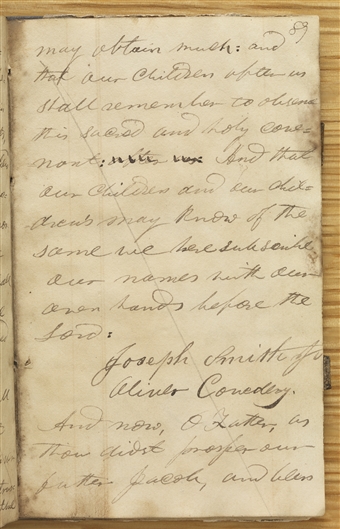 89
may obtain much: and
that our children after us
shall remember to observe
this sacred and holy cove-
nant: after us And that
our children and our chil-
dren's may know of the
same we here subscribe
our names with our
own hands before the
Lord:
Joseph Smith Jr
Oliver Cowdery.
And now, O Father, as
thou didst prosper our
father Jacob, and bless